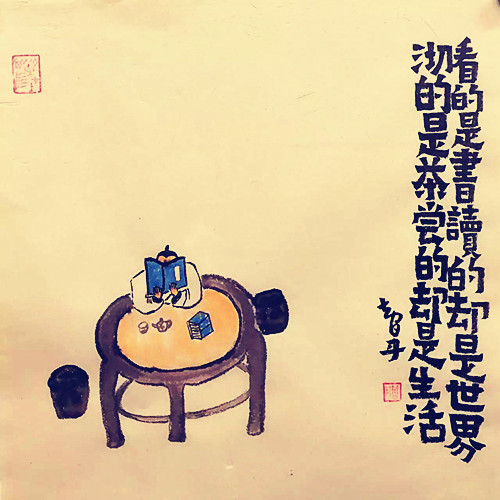 看的是書讀的却是世界
沏的是茶尝的却是生活